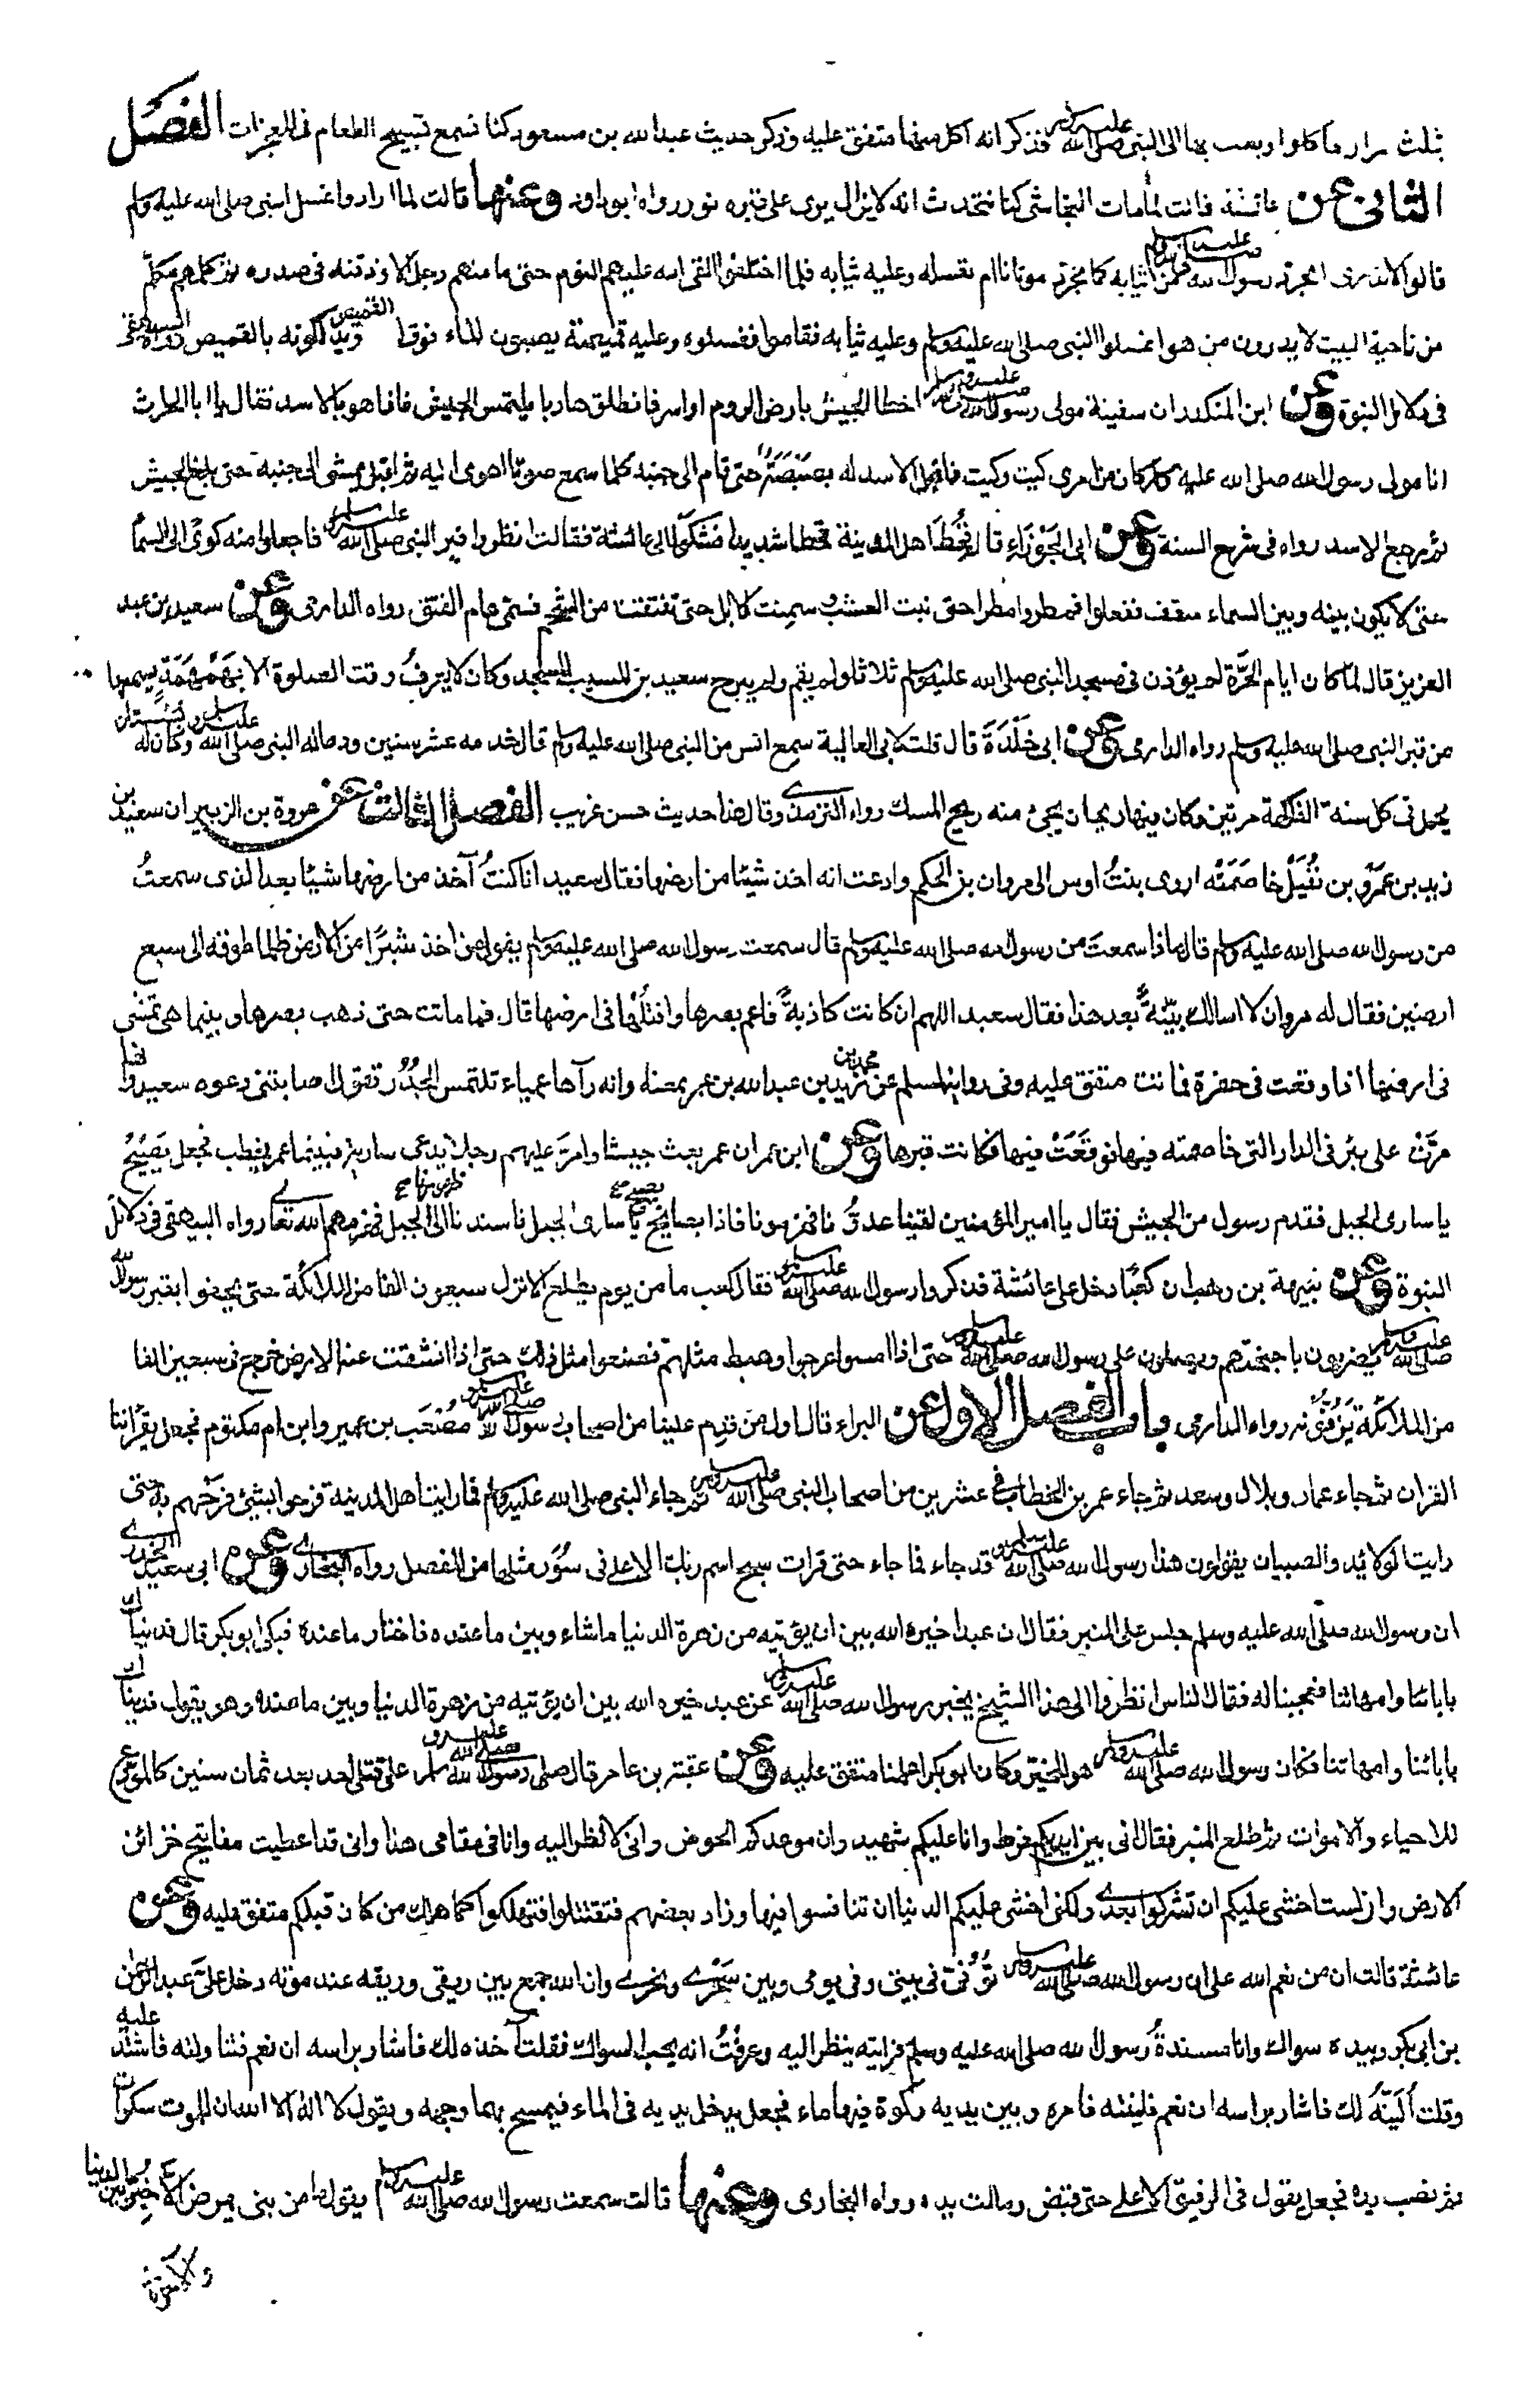 ثلث مرار فاكلوا وبعث بها الى النبي صلى الله عليه وسلم فذكر انه اكل منها متفق عليه وذكر حديث عبد الله بن مسعود كنا نسمع تسبيح الطعام في المعجزات الفصل
الثانى عن عائشة قالت لما مات النجاشي كنا نتحدث انه لا يزال يرى على قبره نور رواه ابو داود وعنها قالت لما ارادوا غسل النبي صلى الله عليه وسلم
قالوا لا ندرى انجرد رسول الله صلى الله عليه وسلم من ثيابه كما نجرد موتانا ام نغسله وعليه ثيابه فلما اختلفوا القى الله عليهم النوم حتى ما منهم رجل الا وذقنه في صدره ثم كلمهم مكلم
من ناحية البيت لا يدرون من هو اغسلوا النبي صلى الله عليه وسلم وعليه ثيابه فقاموا فغسلوه وعليه قميصه يصبون الماء فوق القميص ويدلكونه بالقميص رواه البيهقى
في دلائل النبوة وعن ابن المنكدر ان سفينة مولى رسول الله صلى الله عليه وسلم اخطا الجيش بارض الروم او اسر فانطلق هاربا يلتمس الجيش فاذا هو بالاسد فقال يا ابا الحارث
انا مولى رسول الله صلى الله عليه وسلم كان من امرى كيت وكيت فاقبل الاسد له بصبصة حتى قام الى جنبه كلما سمع صوتا اهوى اليه ثم اقبل يمشى الى جنبه حتى بلغ الجيش
ثم رجع الاسد رواه في شرح السنة وعن ابى الجوزاء قال قحط اهل المدينة قحطا شديدا فشكوا الى عائشة فقالت انظروا قبر النبي صلى الله عليه وسلم فاجعلوا منه كوى الى السماء
حتى لا يكون بينه وبين السماء سقف ففعلوا فمطروا مطرا حتى نبت العشب وسمنت الابل حتى تفتقت من الشحم فسمى عام الفتق رواه الدارمى وعن سعيد بن عبد
العزيز قال لما كان ايام الحرة لم يؤذن في مسجد النبي صلى الله عليه وسلم ثلاثا ولم يقم ولم يبرح سعيد بن المسيب المسجد وكان لا يعرف وقت الصلوة الا بهمهمة يسمعها
من قبر النبي صلى الله عليه وسلم رواه الدارمى وعن ابى خلدة قال قلت لابى العالية سمع انس من النبي صلى الله عليه وسلم قال خدمه عشر سنين ودعا له النبي صلى الله عليه وسلم وكان له بستان
يحمل في كل سنة الفاكهة مرتين وكان فيها ريحان يجئ منه ريح المسك رواه الترمذى وقال هذا حديث حسن غريب الفصل الثالث عن عروة بن الزبير ان سعيد بن
زيد بن عمرو بن نفيل خاصمته اروى بنت اوس الى مروان بن الحكم وادعت انه اخذ شيئا من ارضها فقال سعيد انا كنت آخذ من ارضها شيئا بعد الذى سمعت
من رسول الله صلى الله عليه وسلم قال ماذا سمعت من رسول الله صلى الله عليه وسلم قال سمعت رسول الله صلى الله عليه وسلم يقول من اخذ شبرا من الارض ظلما طوقه الى سبع
ارضين فقال له مروان لا اسالك بينة بعد هذا فقال سعيد اللهم ان كانت كاذبة فاعم بصرها واقتلها في ارضها قال فما ماتت حتى ذهب بصرها وبينما هى تمشى
في ارضها اذ وقعت في حفرة فماتت متفق عليه وفى رواية لمسلم عن محمد بن زيد بن عبد الله بن عمر بمعناه وانه رآها عمياء تلتمس الجدر تقول اصابتنى دعوة سعيد وانها
مرت على بئر في الدار التى خاصمته فيها فوقعت فيها فكانت قبرها وعن ابن عمر ان عمر بعث جيشا وامر عليهم رجلا يدعى سارية فبينما عمر يخطب فجعل يصيح
يا سارى الجبل فقدم رسول من الجيش فقال يا امير المؤمنين لقينا عدو نا فهزمونا فاذا بصايح يصيح يا سارى الجبل فاسندنا ظهورنا الى الجبل فهزمهم الله تعالى رواه البيهقى في دلائل
النبوة وعن نبيهة بن وهب ان كعبا دخل على عائشة فذكروا رسول الله صلى الله عليه وسلم فقال كعب ما من يوم يطلع الا نزل سبعون الفا من الملائكة حتى يحفوا بقبر رسول الله
صلى الله عليه وسلم يضربون باجنحتهم ويصلون على رسول الله صلى الله عليه وسلم حتى اذا امسوا عرجوا وهبط مثلهم فصنعوا مثل ذلك حتى اذا انشقت عنه الارض خرج في سبعين الفا
من الملائكة يزفونه رواه الدارمى باب الفصل الاول عن البراء قال اول من قدم علينا من اصحاب رسول الله صلى الله عليه وسلم مصعب بن عمير وابن ام مكتوم فجعلا يقرأننا
القران ثم جاء عمار وبلال وسعد ثم جاء عمر بن الخطاب في عشرين من اصحاب النبي صلى الله عليه وسلم ثم جاء النبي صلى الله عليه وسلم فما رايت اهل المدينة فرحوا بشئ فرحهم به حتى
رايت الولائد والصبيان يقولون هذا رسول الله صلى الله عليه وسلم قد جاء فما جاء حتى قرات سبح اسم ربك الاعلى في سور مثلها من المفصل رواه البخارى وعن ابى سعيد الخدرى
ان رسول الله صلى الله عليه وسلم جلس على المنبر فقال ان عبدا خيره الله بين ان يؤتيه من زهرة الدنيا ما شاء وبين ما عنده فاختار ما عنده فبكى ابو بكر قال فديناك
باباءنا وامهاتنا فعجبنا له فقال الناس انظروا الى هذا الشيخ يخبر رسول الله صلى الله عليه وسلم عن عبد خيره الله بين ان يؤتيه من زهرة الدنيا وبين ما عنده وهو يقول فديناك
بابائنا وامهاتنا فكان رسول الله صلى الله عليه وسلم هو المخير وكان ابو بكر اعلمنا متفق عليه وعن عقبة بن عامر قال صلى رسول الله صلى الله عليه وسلم على قتلى احد بعد ثمان سنين كالمودع
للاحياء والاموات ثم طلع المنبر فقال انى بين ايديكم فرط وانا عليكم شهيد وان موعدكم الحوض وانى لانظر اليه وانا في مقامى هذا وانى قد اعطيت مفاتيح خزائن
الارض وانى لست اخشى عليكم ان تشركوا بعدى ولكنى اخشى عليكم الدنيا ان تنافسوا فيها وزاد بعضهم فتقتتلوا فتهلكوا كما هلك من كان قبلكم متفق عليه وعن
عائشة قالت ان من نعم الله على ان رسول الله صلى الله عليه وسلم توفى في بيتى وفى يومى وبين سحرى ونحرى وان الله جمع بين ريقى وريقه عند موته دخل على عبد الرحمن
بن ابى بكر وبيده سواك وانا مسندة رسول الله صلى الله عليه وسلم فرايته ينظر اليه وعرفت انه يحب السواك فقلت آخذه لك فاشار براسه ان نعم فتناولته فاشتد عليه
وقلت ألينه لك فاشار براسه ان نعم فلينته فامره وبين يديه ركوة فيها ماء فجعل يدخل يديه في الماء فيمسح بهما وجهه ويقول لا اله الا الله ان للموت سكرات
ثم نصب يده فجعل يقول في الرفيق الاعلى حتى قبض ومالت يده رواه البخارى وعنها قالت سمعت رسول الله صلى الله عليه وسلم يقول ما من نبى يمرض الا خير بين الدنيا
والآخرة